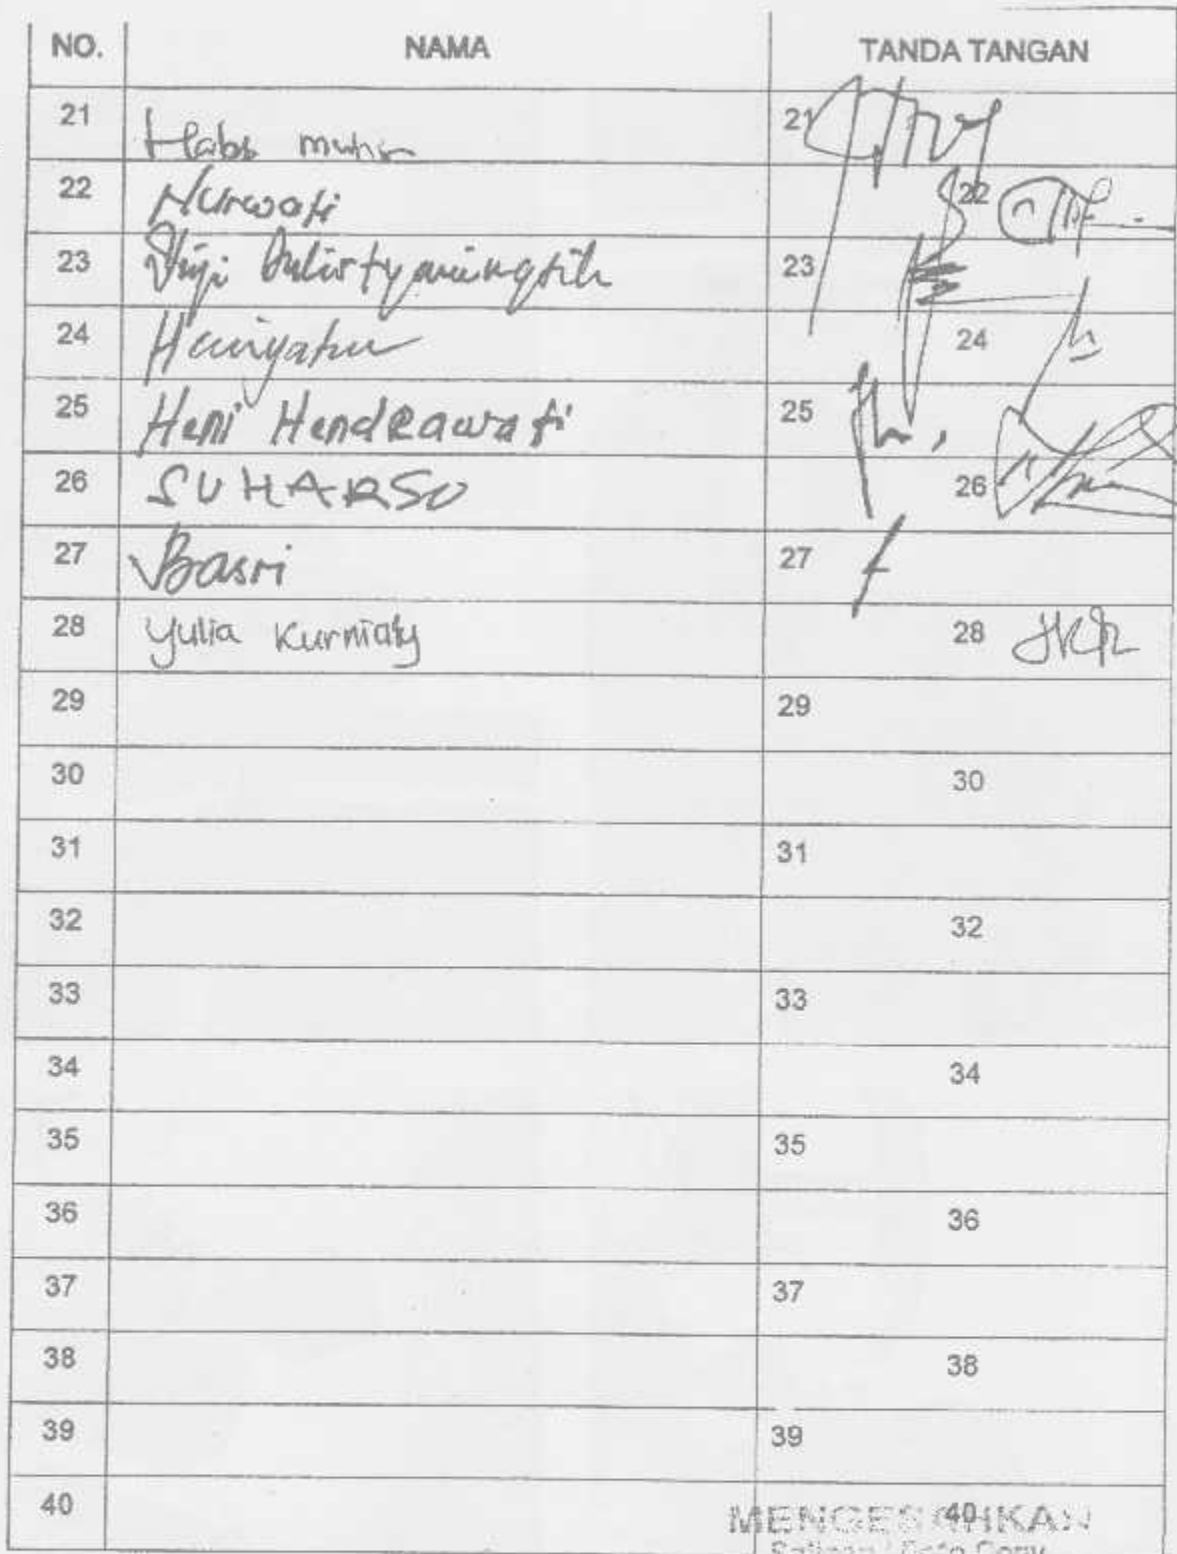 NO. NAMA TANDA TANGAN
21 21
22 Nurwati 22
23 23
24 24
25 Heni HendRawati 25
26 SUHARSO 26
27 Basri 27
28 Yulia Kurniaty 28
29 29
30 30
31 31
32 32
33 33
34 34
35 35
36 36
37 37
38 38
39 39
40 40
MENGESAHKAN